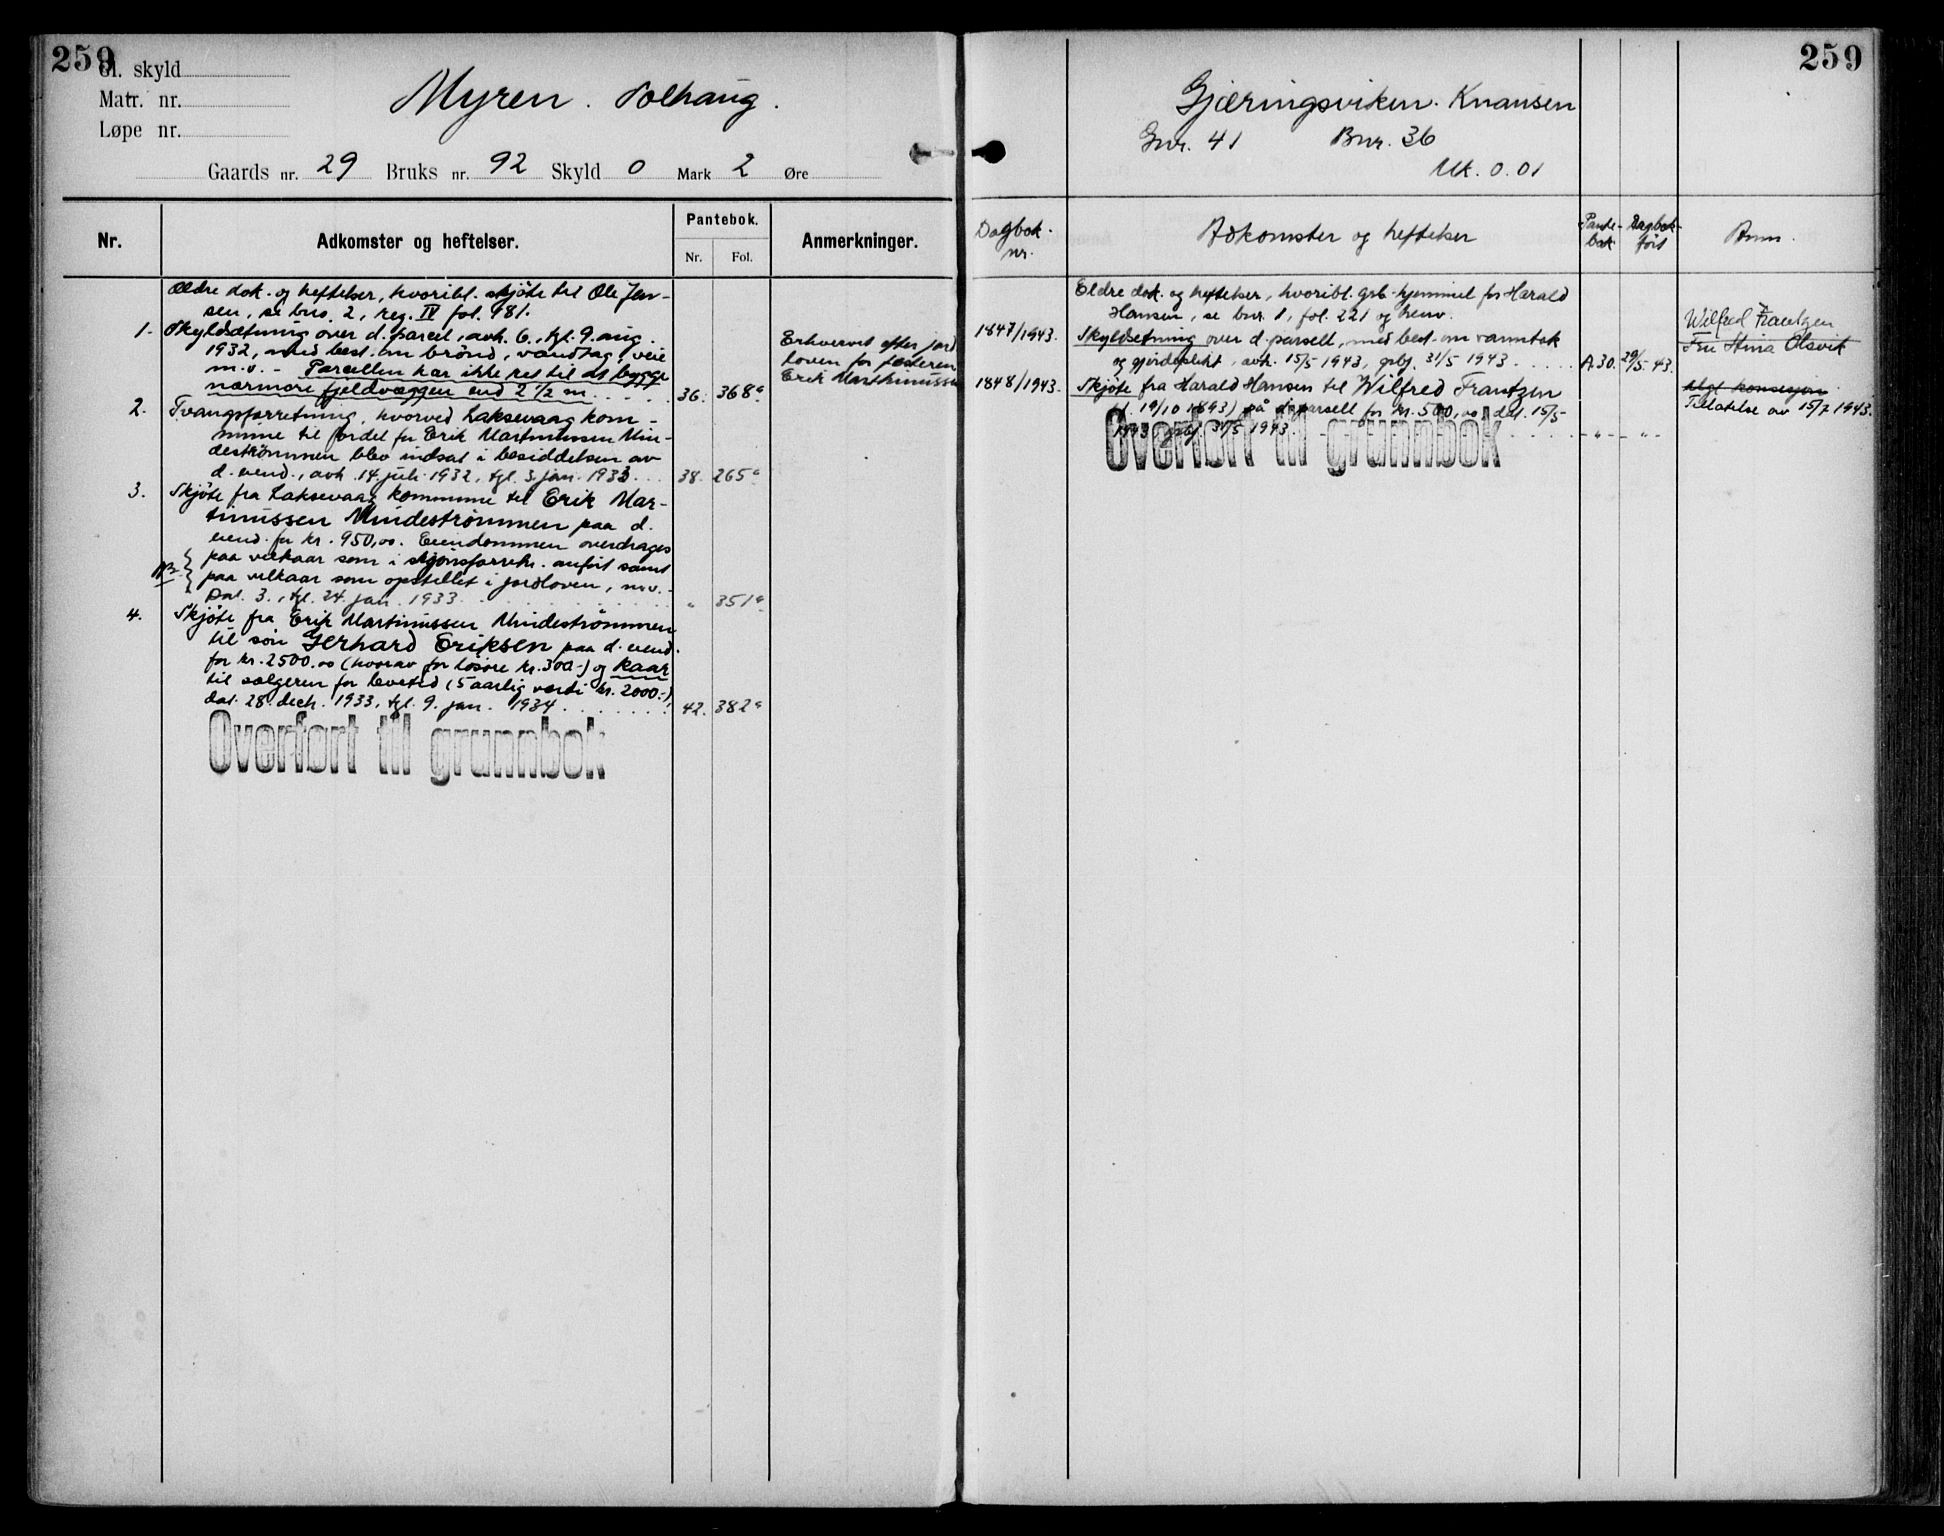 259
Gl. skyld
Matr. nr.
Løpe nr.
Myren. Solhaug.
Gaards nr. 29 Bruks nr. 92 Skyld 0 Mark 2 Øre
Nr.
Adkomster og heftelser.
Pantebok.
Nr. Fol.
Anmerkninger.
Ældre dok. og heftelser, hvoribl. skjøte til Ole Jen-
sen, se bno. 2, reg. IV fol. 981.
1. Skyldsætning over d. parcel, avh. 6., tgl. 9. aug.
1932, med best. om brønd, vandtag, veie
m.v. - Parcellen har ikke ret til at bygge
nærmere fjeldvæggen end 2 1/2 m. . . . . 36. 368a
Erhvervet efter jord
loven for fæsteren
Erik Marthinussen
2. Tvangsforretning, hvorved Laksevaag kom-
mune til fordel for Erik Martinussen Min-
destrømmen blev indsat i besiddelsen av
d. eiend., avh. 14. juli 1932, tgl. 3. jan. 1933. . . 38. 265a
3. Skjøte fra Laksevaag kommune til Erik Mar-
tinussen Mindestrømmen paa d.
eiend. for kr. 950,00. Eiendommen overdrages
paa vilkaar som i skjønsforretn. anført samt
paa vilkaar som opstillet i jordloven, m.v. -
Dat. 3., tgl. 24. jan. 1933. " 351a
4. Skjøte fra Erik Martinussen Mindestrømmen
til søn Gerhard Eriksen paa d. eiend.
for kr. 2500.00 (hvorav for løsøre kr. 300.-) og kaar
til sælgeren for levetid (5 aarlig værdi kr. 2000.-),
dat. 28. decb. 1933, tgl. 9. jan. 1934. . . . . . . 42. 382a
Overført til grunnbok
259
Gjæringsviken. Knausen
Gnr. 41 Bnr. 36
Mk. 0.01
Dagbok-
nr.
Adkomster og heftelser
Pante-
bok
Dagbok-
ført
Anm.
Eldre dok. og heftelser, hvoribl. grb. hjemmel for Harald
Hansen, se bnr. 1, fol. 221 og henv.
1847/1943. Skyldsetning over d. parsell, med best. om vanntak
og gjerdeplikt, avh. 15/5 1943, grbj. 31/5 1943. . . . . A.30. 29/5-43.
Wilfred Frantzen
Fru Stina Olsvik
1848/1943. Skjøte fra Harald Hansen til Wilfred Frantzen
(f. 19/10 1893) på d. parsell for kr. 500,00, dat. 15/5
1943, grbj 31/5 1943. . . . . - " - - " -
konsesjon
Tillatelse av 15/7 1943.
Overført til grunnbok